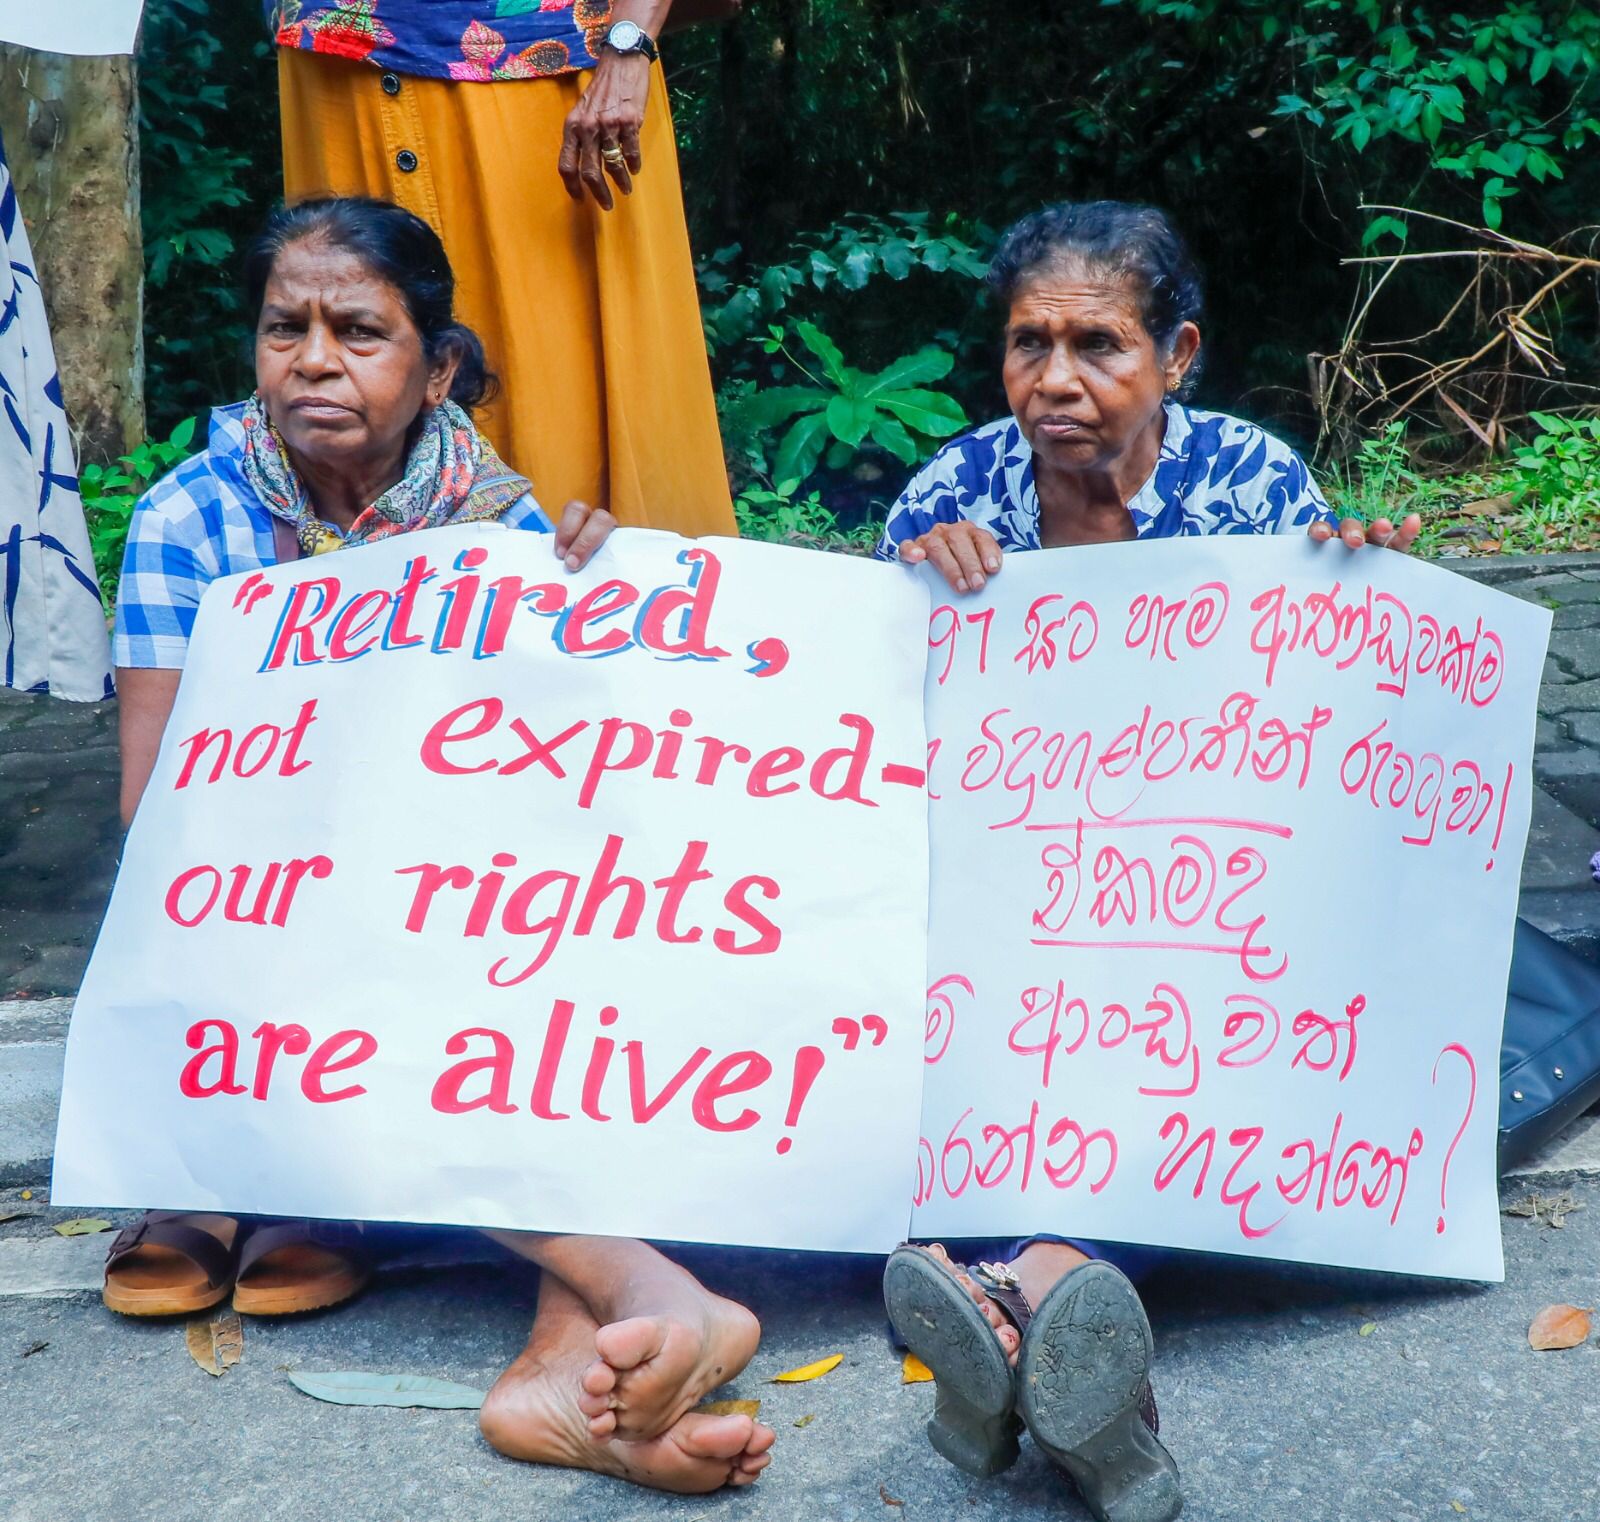 "Retired,
not expired-
our rights
are alive!"
97 සිට හැම ආණ්ඩුවක්ම
විදුහල්පතීන් රුවටුවා!
ඒකමද
මේ ආංඩුවත්
කරන්න හදන්නේ?